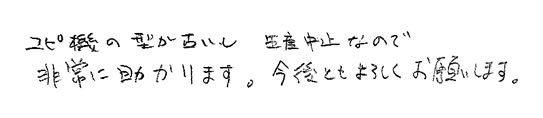 コピー機の型が古いし 生産中止なので
非常に助かります。今後ともよろしくお願いします。